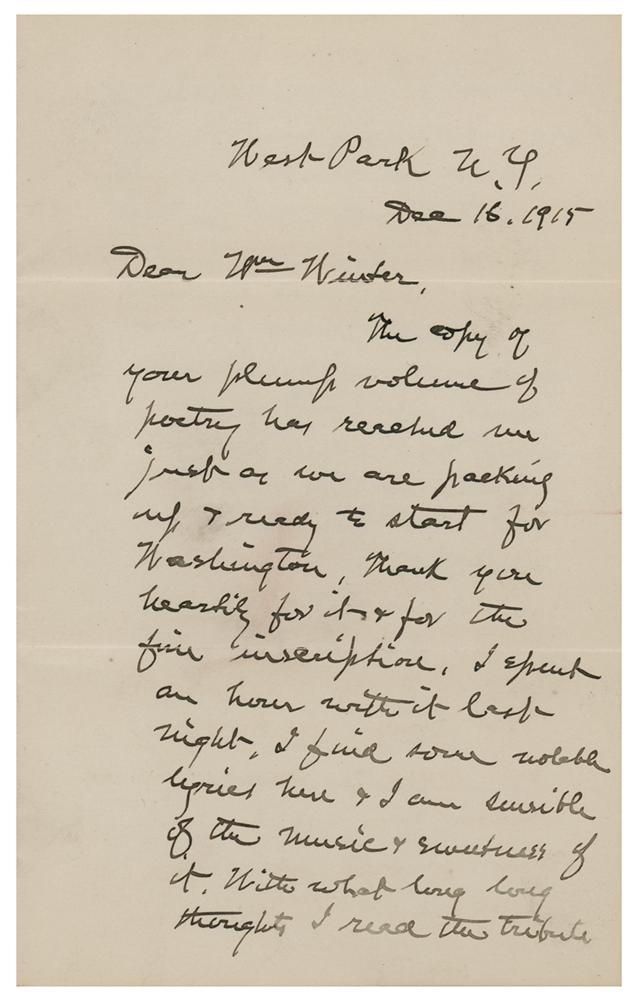 West Park N.Y.
Dec 16. 1915
Dear Wm Winter,
The copy of
your plump volume of
poetry has reached me
just as we are packing
up & ready to start for
Washington, Thank you
heartily for it & for the
fine inscription. I spent
an hour with it last
night, I find some notable
lyrics here & I am sensible
of the music & sweetness of
it. With what long long
thoughts I read the tribute